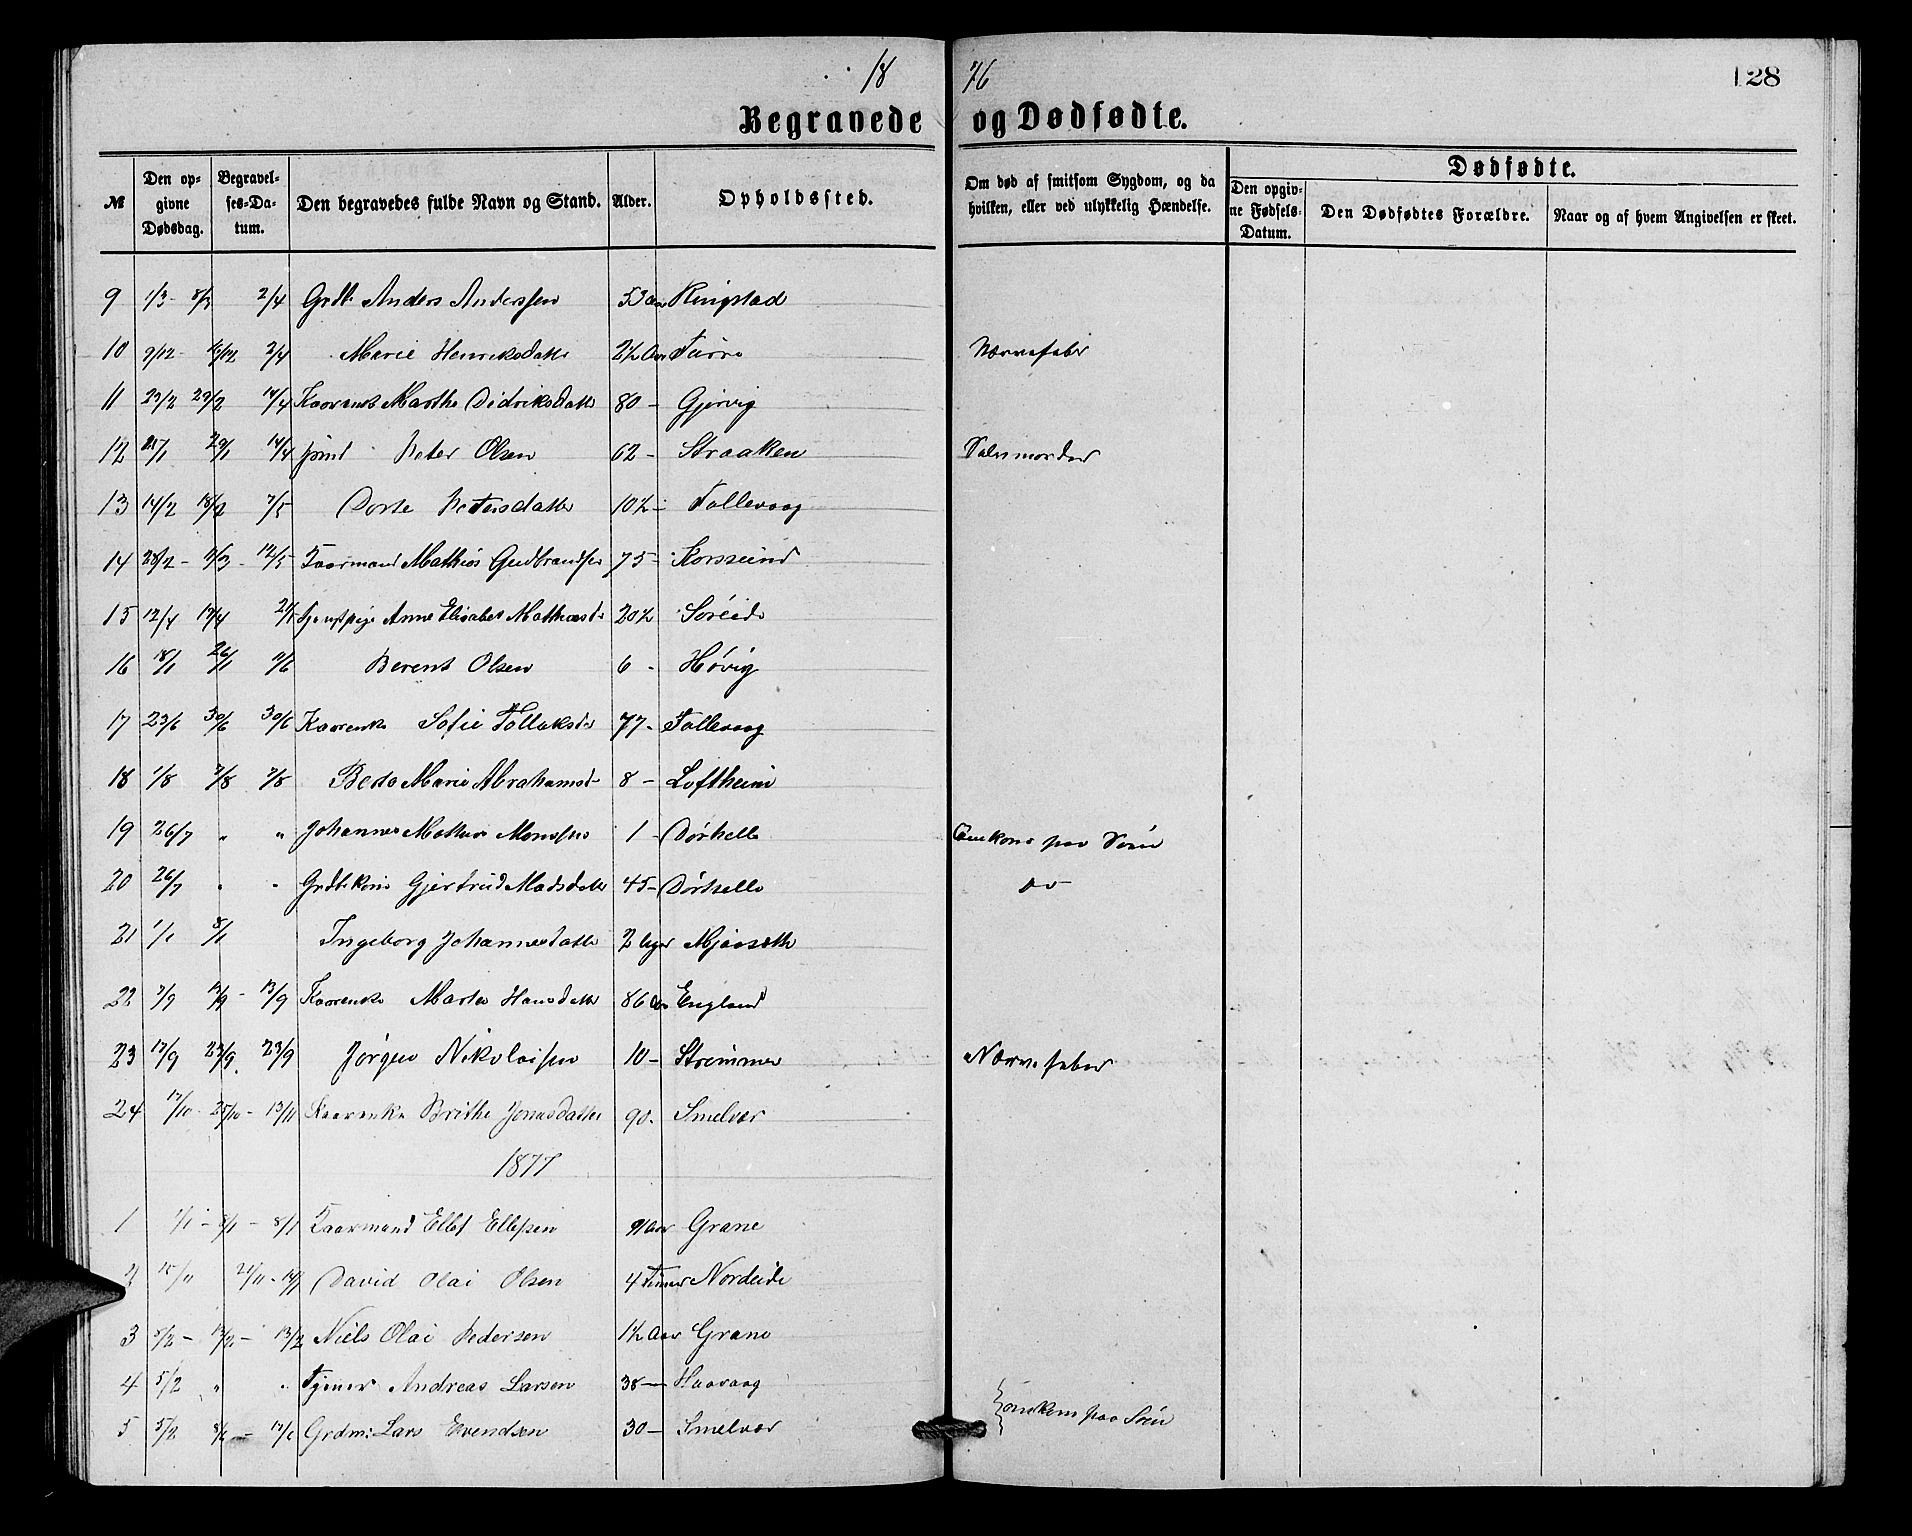 1876
128
Begravede og Dødfødte.
№ Den opgivne Dødsdag. Begravelses-Datum. Den begravedes fulde Navn og Stand. Alder. Opholdssted. Om død af smitsom Sygdom, og da hvilken, eller ved ulykkelig Hændelse. Dødfødte.
Den opgivne Fødsels-Datum. Den Dødfødtes Forældre. Naar og af hvem Angivelsen er skeet.
9 1/3 - 8/3 2/4 Grdb. Anders Anderssen 53 Aar Ringstad
10 9/12 - 16/12 2/4 Marie Henriksdatter 2½ Aar
11 23/2 29/2 17/4 Marthe Didriksdatter 80 - Gjervig
12 29/1 17/4 Peter Olsen 62 - Straaken
13 14/2 18/2 7/5 Dorte Petersdatter 10½ - Tallevaag
14 28/2 - 12/5 Kaarmand Mathias Gudbrandsen 75 - Korssund
15 12/4 Anne Elisabet 20½ Søreide
16 18/1 26/1 11/6 Berent Olsen 6 - Høvig
17 23/6 30/6 30/6 Kaarenke Sofie Tollaksdr 77 - Tallevaag
18 1/8 7/8 7/8 Marie Abrahamsd- 8 - Loftheim
19 26/7 " " Johannes Monssen 1 - Dørhelle Omkom paa Søen
20 26/7 " " Grdbkone Gjertrud Madsdatter 45 - Dørhelle do
21 1/1 8/1 Ingeborg Johannesdatter 2 Uger Mjaaseth
22 7/9 13/9 - 13/9 Kaarenke Marta Hansdatter 86 Aar England
23 17/9 23/9 23/9 Jørgen Nikolaisen 10 - Strømmen Nervefeber
24 17/10 - 25/10 - 13/11 Kaarenke Brithe Jonasdatter 90. Smelvær
1877
1 1/1 - 8/1 - 8/1 Kaarmand Ellef Ellefsen 91 Aar Grane
2 15/11 21/11 - David Olai Olsen 4 Timer Nordeide
3 5/2 - 13/2 - 13/2 Niels Olai Pedersen 1½ Aar Grane
4 5/2 " " Andreas Larsen 38 - Haavaag
5 5/2 Grdm: Lars Evendsen 30 - Smelvær } omkom paa Søen